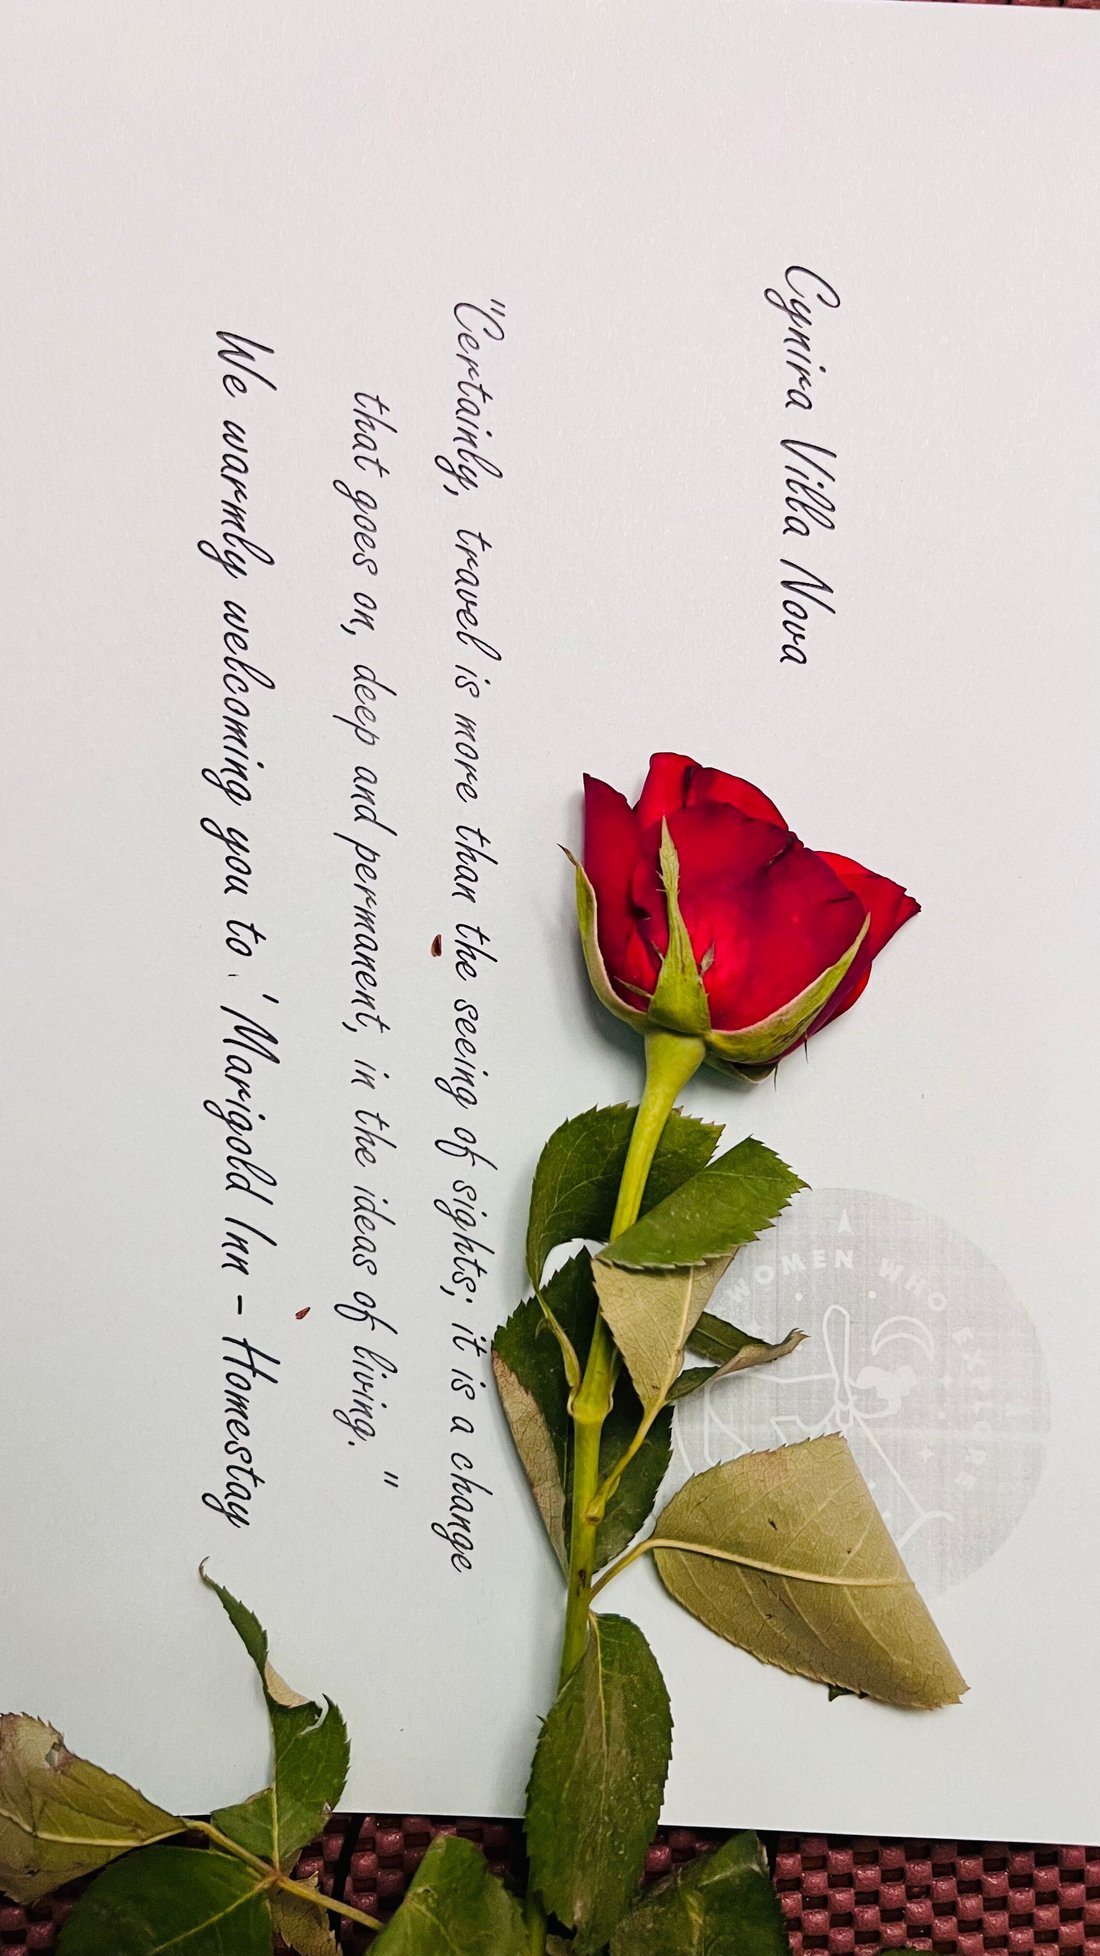 Cynira Villa Nova
"Certainly, travel is more than the seeing of sights; it is a change
that goes on, deep and permanent, in the ideas of living. "
We warmly welcoming you to ' Marigold Inn - Homestay
WOMEN WHO EXPLORE